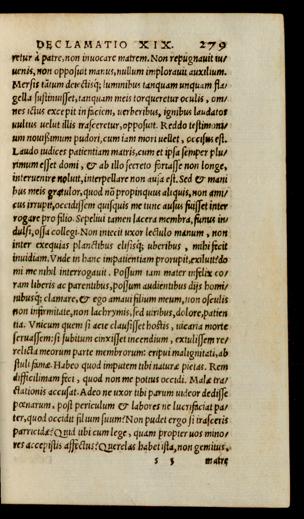 DECLAMATIO XIX. 279
retur à patre, non inuocare matrem. Non repugnauit iu/
uenis, non opposuit manus, nullum implorauit auxilium.
Mersis tãtum deiectisq; luminibus tanquam unquam fla/
gella sustinuisset, tanquam meis torqueretur oculis, om/
nes ictus excepit in faciem, uerberibus, ignibus laudatos
uultus uelut illis irasceretur, opposuit. Reddo testimoni/
um nouissimum pudori, cum iam mori uellet, occisus est.
Laudo iudices patientiam matris, cum et ipsa semper plu/
rimum esset domi, & ab illo secreto fortasse non longe,
interuenire noluit, interpellare non ausa est. Sed & mani
bus meis gratulor, quod nõ propinquus aliquis, non ami/
cus irrupit, occidissem quisquis me tunc ausus fuisset inter
rogare pro filio. Sepeliui tamen lacera membra, funus in/
dulsi, ossa collegi. Non iniecit uxor lectulo manum, non
inter exequias planctibus elisisq; uberibus, mihi fecit
inuidiam. Vnde in hanc impatientiam prorupit, exilui? do
mi me nihil interrogauit. Possum tam mater infelix co/
ram liberis ac parentibus, possum audientibus dijs homi/
nibusq; clamare, & ego amaui filium meum, non osculis
non infirmitate, non lachrymis, sed uiribus, dolore, patien
tia. Vnicum quem si acie clausisset hostis, uicaria morte
seruassem: si subitum cinxisset incendium, extulissem re/
relicta meorum parte membrorum: eripui malignitati, ab
stuli famæ. Habeo quod imputem tibi naturæ pietas. Rem
difficilimam feci, quod non me potius occidi. Malæ tra/
ctationis accusat. Adeo ne uxor tibi parum uideor dedisse
pœnarum, post periculum & labores ne lucrifaciat pa/
ter, quod occidit filium suum? Non pudet ergo si irasceris
parricidæ? Quid tibi cum lege, quam propter uos mino/
res accepistis affectus? Querelas habet ista, non gemitus,
s 3 matre